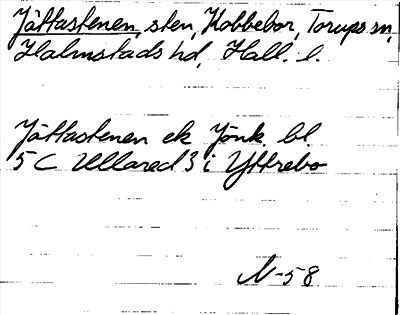 Jättastenen, sten, Kobbebor, Torups sn,
Halmstads hd, Hall. l.
Jättastenen ek Jönk. bl.
5 C Ullared 3 i Yttrebo
N-58